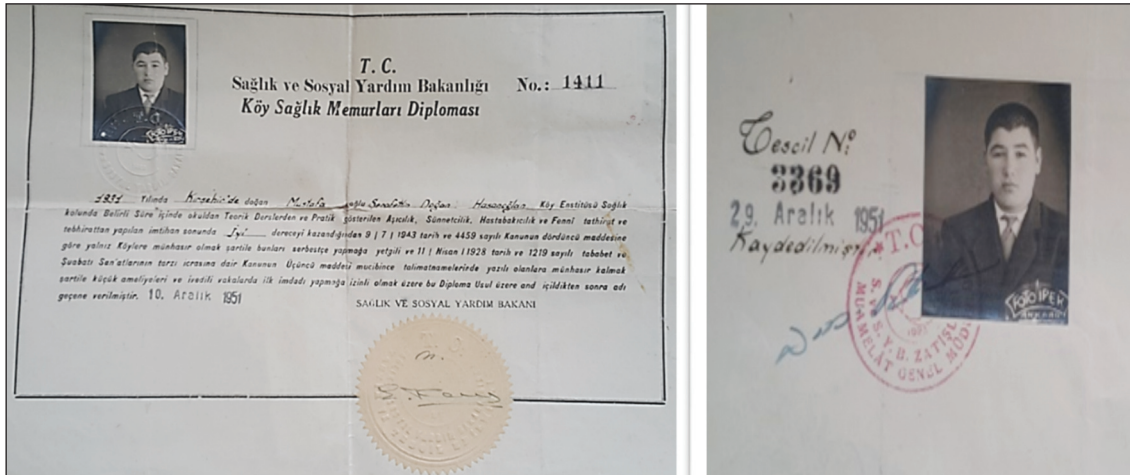 T. C.
Sağlık ve Sosyal Yardım Bakanlığı
No.: 1411
Köy Sağlık Memurları Diploması
1931 Yılında Kırşehir'de doğan Mustafa oğlu Doğan Hasanoğlan Köy Enstitüsü Sağlık
kolunda Belirli Süre içinde okuldan Teorik Derslerden ve Pratik gösterilen Aşıcılık, Sünnetcilik, Hastabakıcılık ve Fennî tathirat ve
tebhirattan yapılan imtihan sonunda İyi dereceyi kazandığından 9 / 7 / 1943 tarih ve 4459 sayılı Kanunun dördüncü maddesine
göre yalnız Köylere münhasır olmak şartile bunları serbestçe yapmağa yetgili ve 11 / Nisan / 1928 tarih ve 1219 sayılı tababet ve
Şuabatı San'atlarının tarzı icrasına dair Kanunun Üçüncü maddesi mucibince talimatnamelerinde yazılı olanlara münhasır kalmak
şartile küçük ameliyeleri ve ivedili vakalarda ilk imdadı yapmağa izinli olmak üzere bu Diploma Usul üzere and içildikten sonra adı
geçene verilmiştir. 10. Aralık 1951
SAĞLIK VE SOSYAL YARDIM BAKANI
FOTO İPEK
Tescil No:
3369
29. Aralık 1951
Kaydedilmiştir.
T.C.
S. ve S. Y. B. ZATİŞL
MUAMELÂT GENEL MÜD
FOTO İPEK
ANKARA